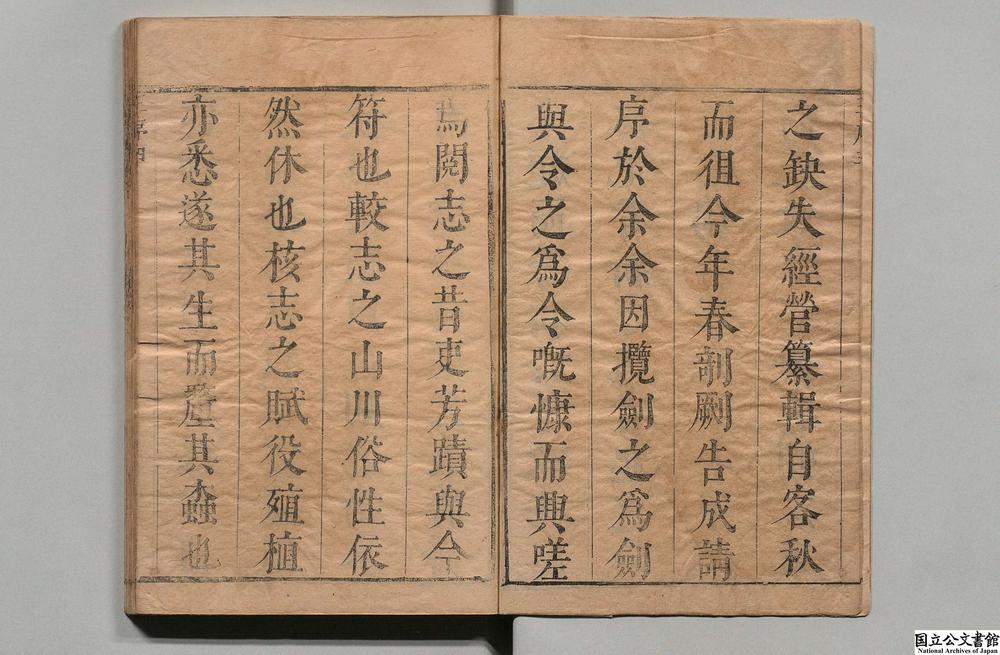 之缺失經營纂輯自客秋
而徂今年春剞劂告成請
序於余余因攬劍之爲劍
與令之爲令嘅慷而興嗟
焉閱志之昔吏芳蹟與今
符也較志之山川俗性依
然休也核志之賦役殖植
亦悉遂其生而釐其蠧也
国立公文書館
National Archives of Japan